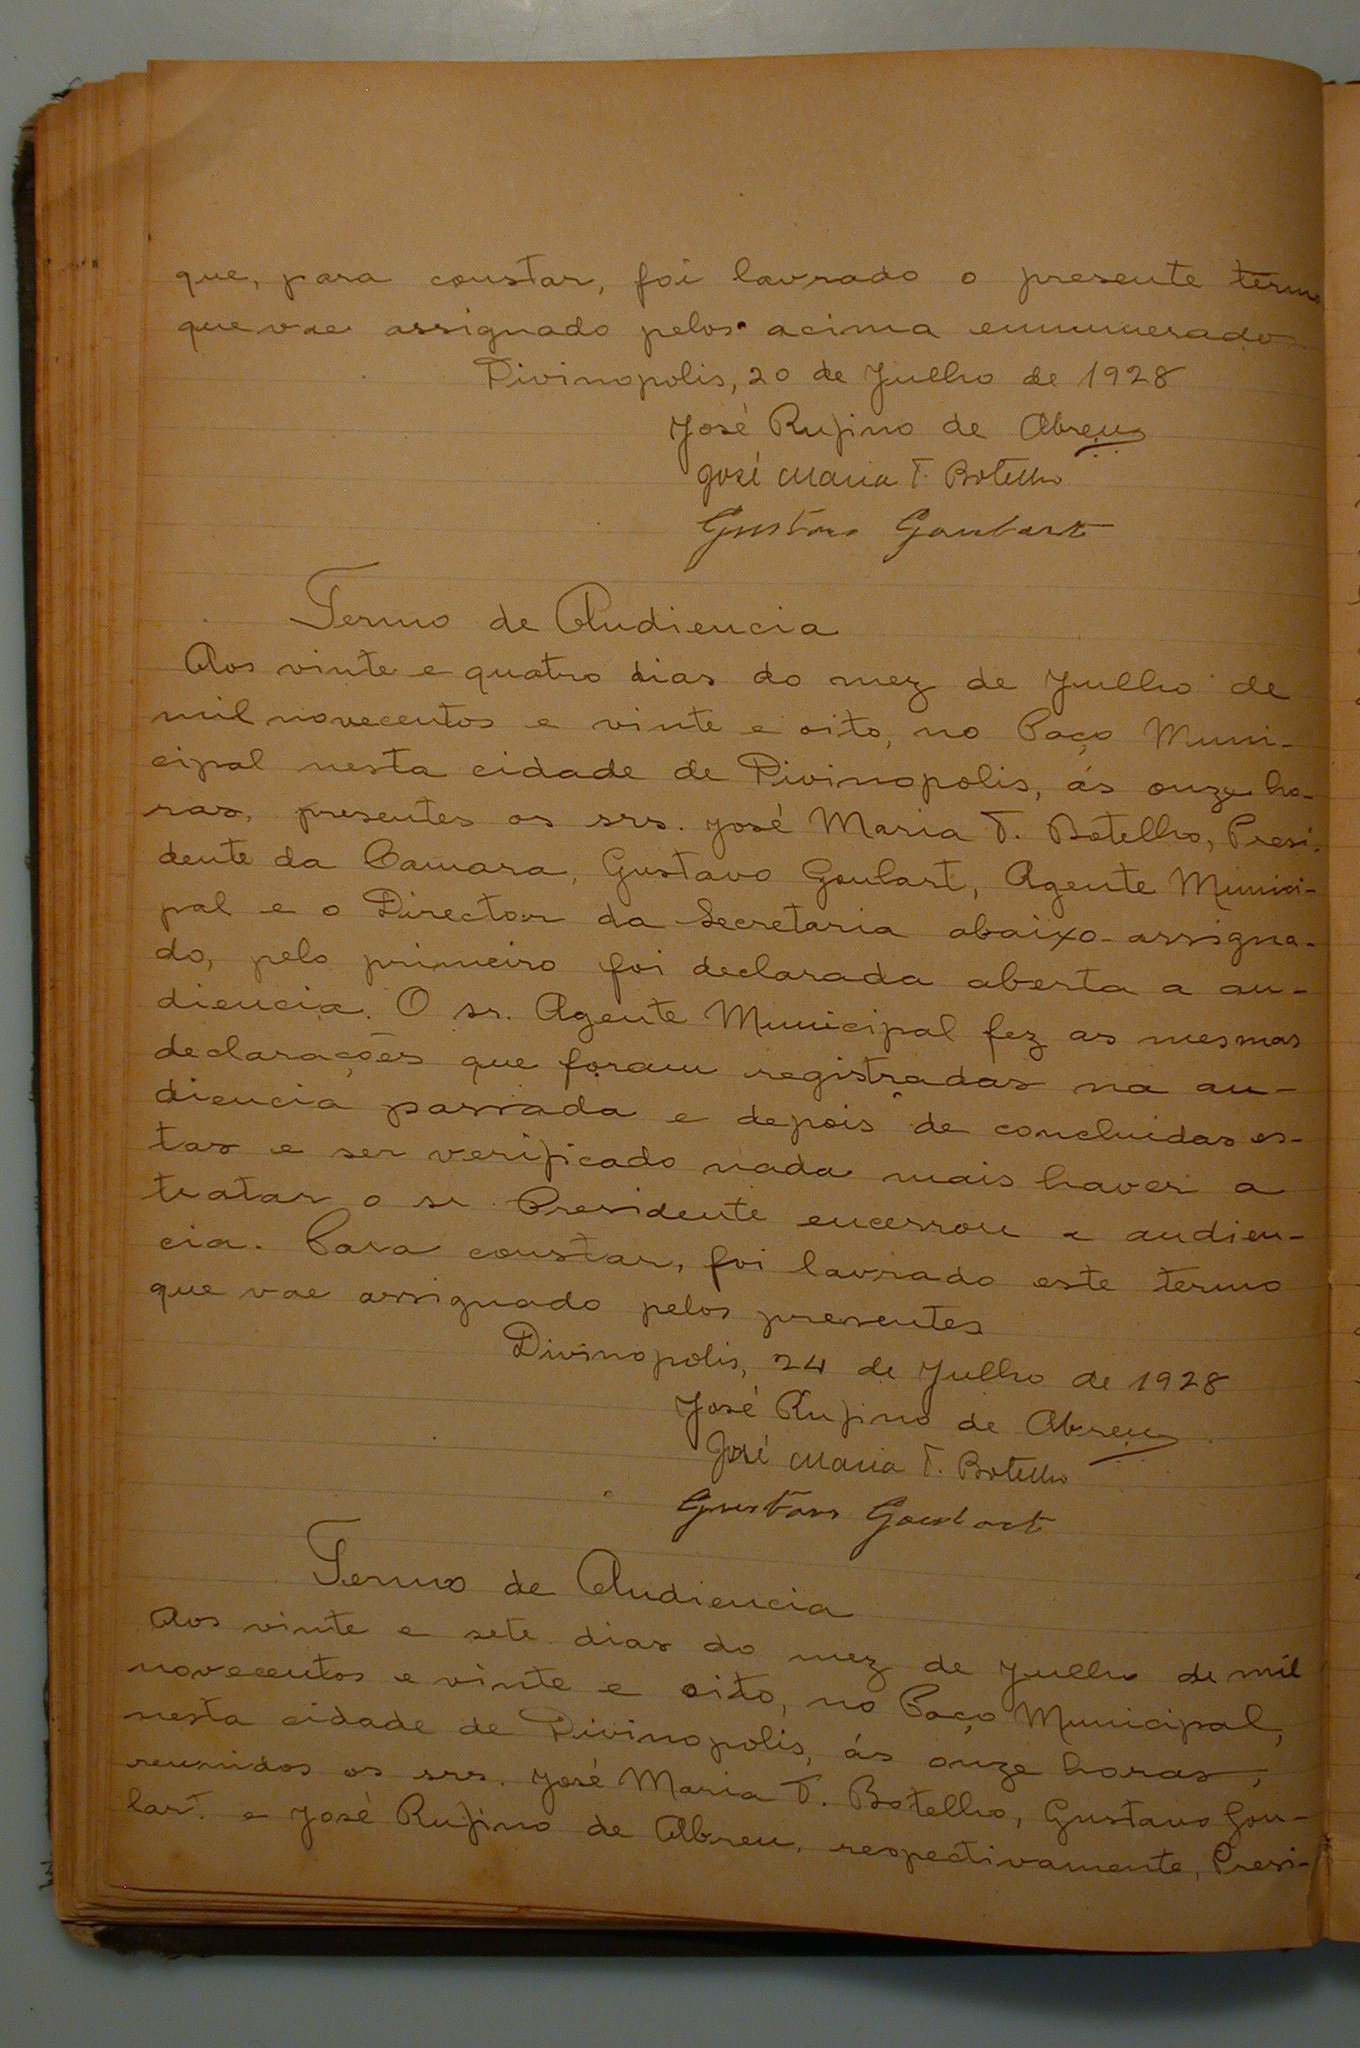 que, para constar, foi lavrado o presente termo
que vae assignado pelos acima ennumerados
Divinopolis, 20 de Julho de 1928
José Rufino de Abreu
José Maria T. Botelho
Gustavo Goulart
Termo de Audiencia
Aos vinte e quatro dias do mez de Julho de
mil novecentos e vinte e oito, no Paço Muni-
cipal nesta cidade de Divinopolis, ás onze ho-
ras, presentes os srs. José Maria T. Botelho, Presi-
dente da Camara, Gustavo Goulart, Agente Munici-
pal e o Director da Secretaria abaixo-assigna-
do, pelo primeiro foi declarada aberta a au-
diencia. O sr. Agente Municipal fez as mesmas
declarações que foram registradas na au-
diencia passada e depois de concluidas es-
tas e ser verificado nada mais haver a
tratar o sr. Presidente encerrou a audien-
cia. Para constar, foi lavrado este termo
que vae assignado pelos presentes
Divinopolis, 24 de Julho de 1928
José Rufino de Abreu
José Maria T. Botelho
Gustavo Goulart
Termo de Audiencia
Aos vinte e sete dias do mez de Julho de mil
novecentos e vinte e oito, no Paço Municipal,
nesta cidade de Divinopolis, ás onze horas,
reunidos os srs. José Maria T. Botelho, Gustavo Gou-
lart. e José Rufino de Abreu, respectivamente, Presi-